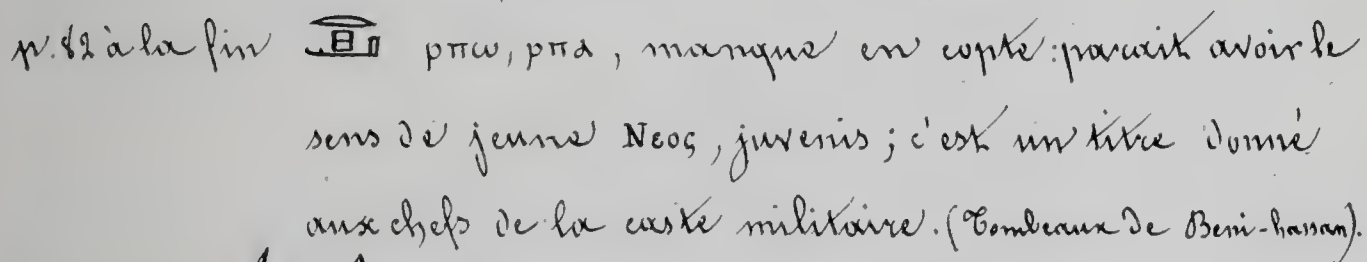 p. 82 à la fin ⲣⲡⲱ, ⲣⲡⲁ, manque en copte: parait avoir le
sens de jeune Νεος, juvenis; c'est un titre donné
aux chefs de la caste militaire. (Tombeaux de Beni-hassan).